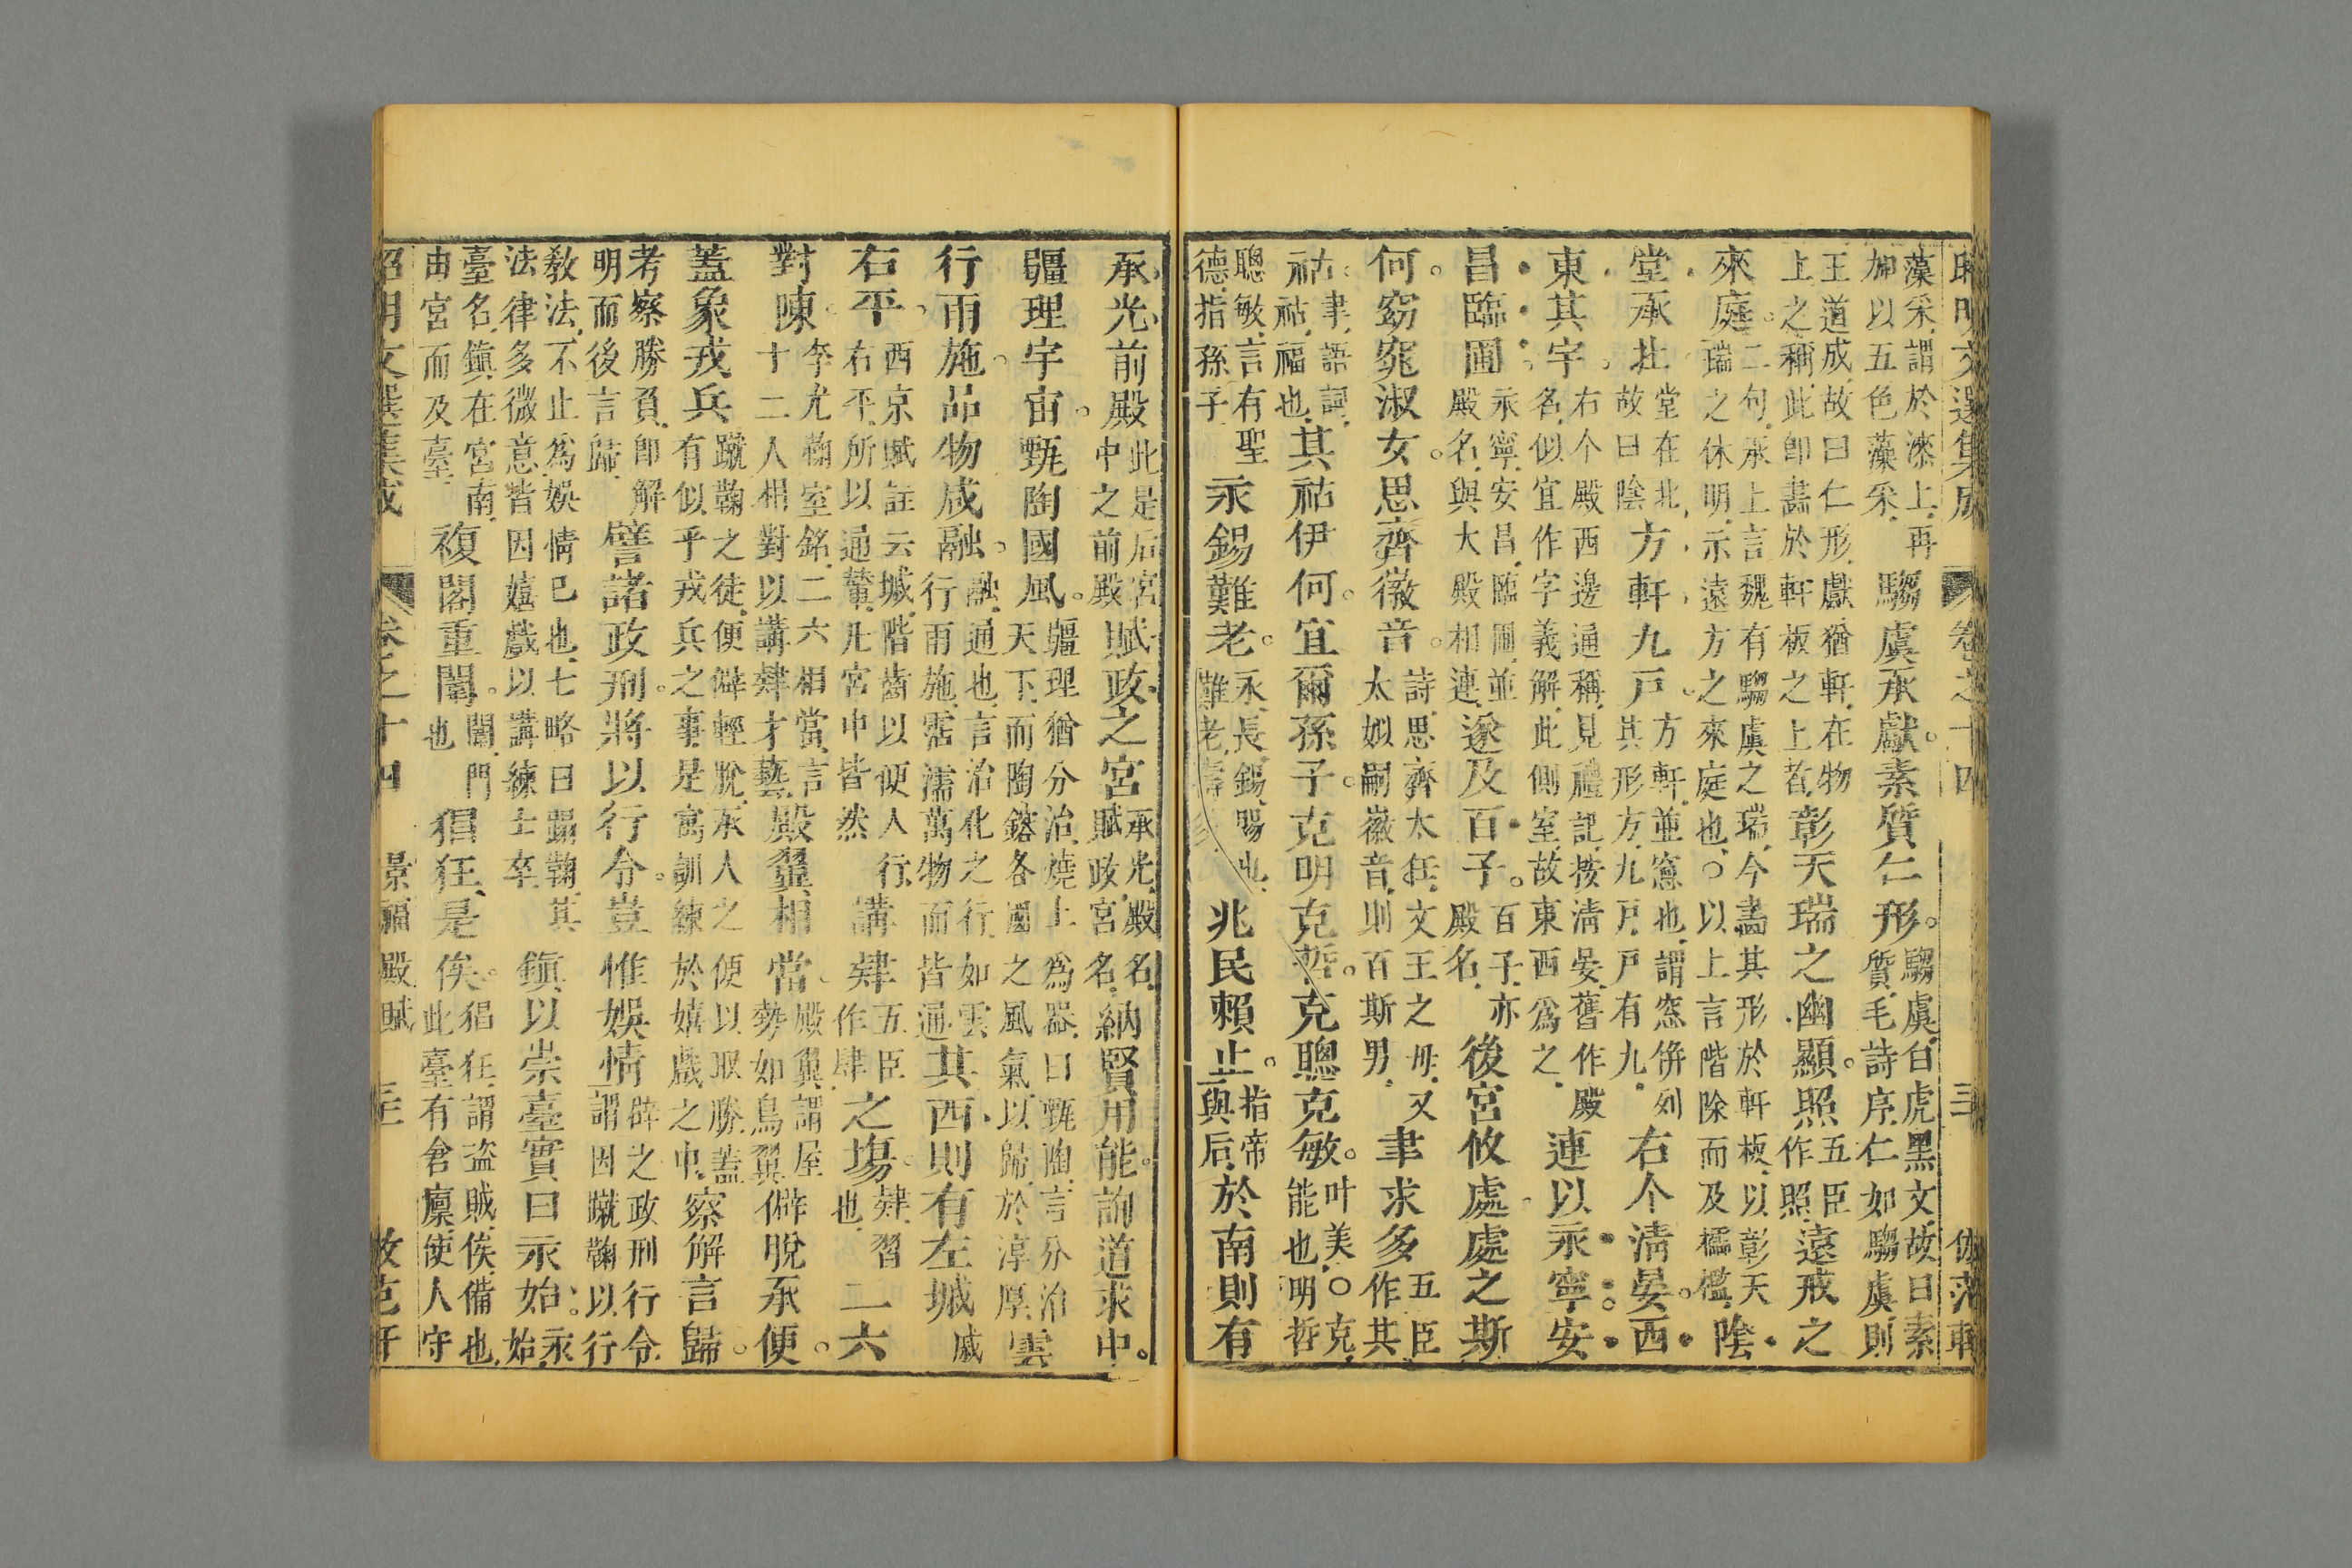 昭明文選集成 卷之十四 三 仿范軒
藻采謂於漆上再加以五色藻采騶虞承獻。素質仁形。騶虞白虎黑文故曰素質毛詩序仁如騶虞則
王道成故曰仁形戲猶軒在物上之稱此卽畵於軒板之上者彰天瑞之幽顯。照五臣作照遠戒之
來庭。二句承上言魏有騶虞之瑞今畵其形於軒板以彰天瑞之休明示遠方之來庭也○以上言階除而及櫺檻陰
堂承北堂在北故曰陰方軒九戸。方軒並窓也謂窓倂列其形方九戸戸有九右个淸晏。西
東其宇。右个殿西邊通稱見禮記按淸晏舊作殿名似宜作字義解此側室故東西爲之連以永寧安
昌臨圃。永寧安昌臨圃並殿名與大殿相連遂及百子。百子亦殿名後宮攸處。處之斯
何。窈窕淑女。思齊徽音。詩思齊太任文王之母又太姒嗣徽音則百斯男聿求多五臣作其
祜。聿語詞祜福也其祜伊何。宜爾孫子。克明克哲。克聰克敏。叶美○克能也明哲
聰敏言有聖德指孫子永錫難老。永長錫賜也難老兆民賴止。指帝與后於南則有
承光前殿此是后宮中之前殿賦政之宮承光殿名賦政宮名納賢用能。詢道求中。
疆理宇宙。甄陶國風。疆理猶分治燒土爲器曰甄陶言分治天下而陶鎔各國之風氣以歸於淳厚雲
行雨施。品物咸融。融通也言治化之行如雲行雨施霑濡萬物而皆通其西則有左墄墄
右平。西京賦註云墄階齒以便人行右平所以通輦凡宮中皆然講肄五臣作肆之場。肄習也二六
對陳。李尤鞠室銘二六相當言十二人相對以講肄才藝殿翼相當。殿翼謂屋勢如鳥翼僻脫承便。
蓋象戎兵蹴鞠之徒便僻輕脫承人之便以取勝蓋有似乎戎兵之事是寓訓練於嬉戲之中察解言歸。
考察勝負卽解明而後言歸譬諸政刑。將以行令。豈惟娛情辟之政刑行令謂因蹴鞠以行
敎法不止爲娛情已也七略曰蹴鞠其法律多微意皆因嬉戲以講練士卒鎭以崇臺實曰永始。永始
臺名鎭在宮南由宮而及臺複閣重闈。闈門也猖狂是俟。猖狂謂盜賊俟備也此臺有倉廩使人守
昭明文選集成 卷之十四 景福殿賦 三 仿范軒